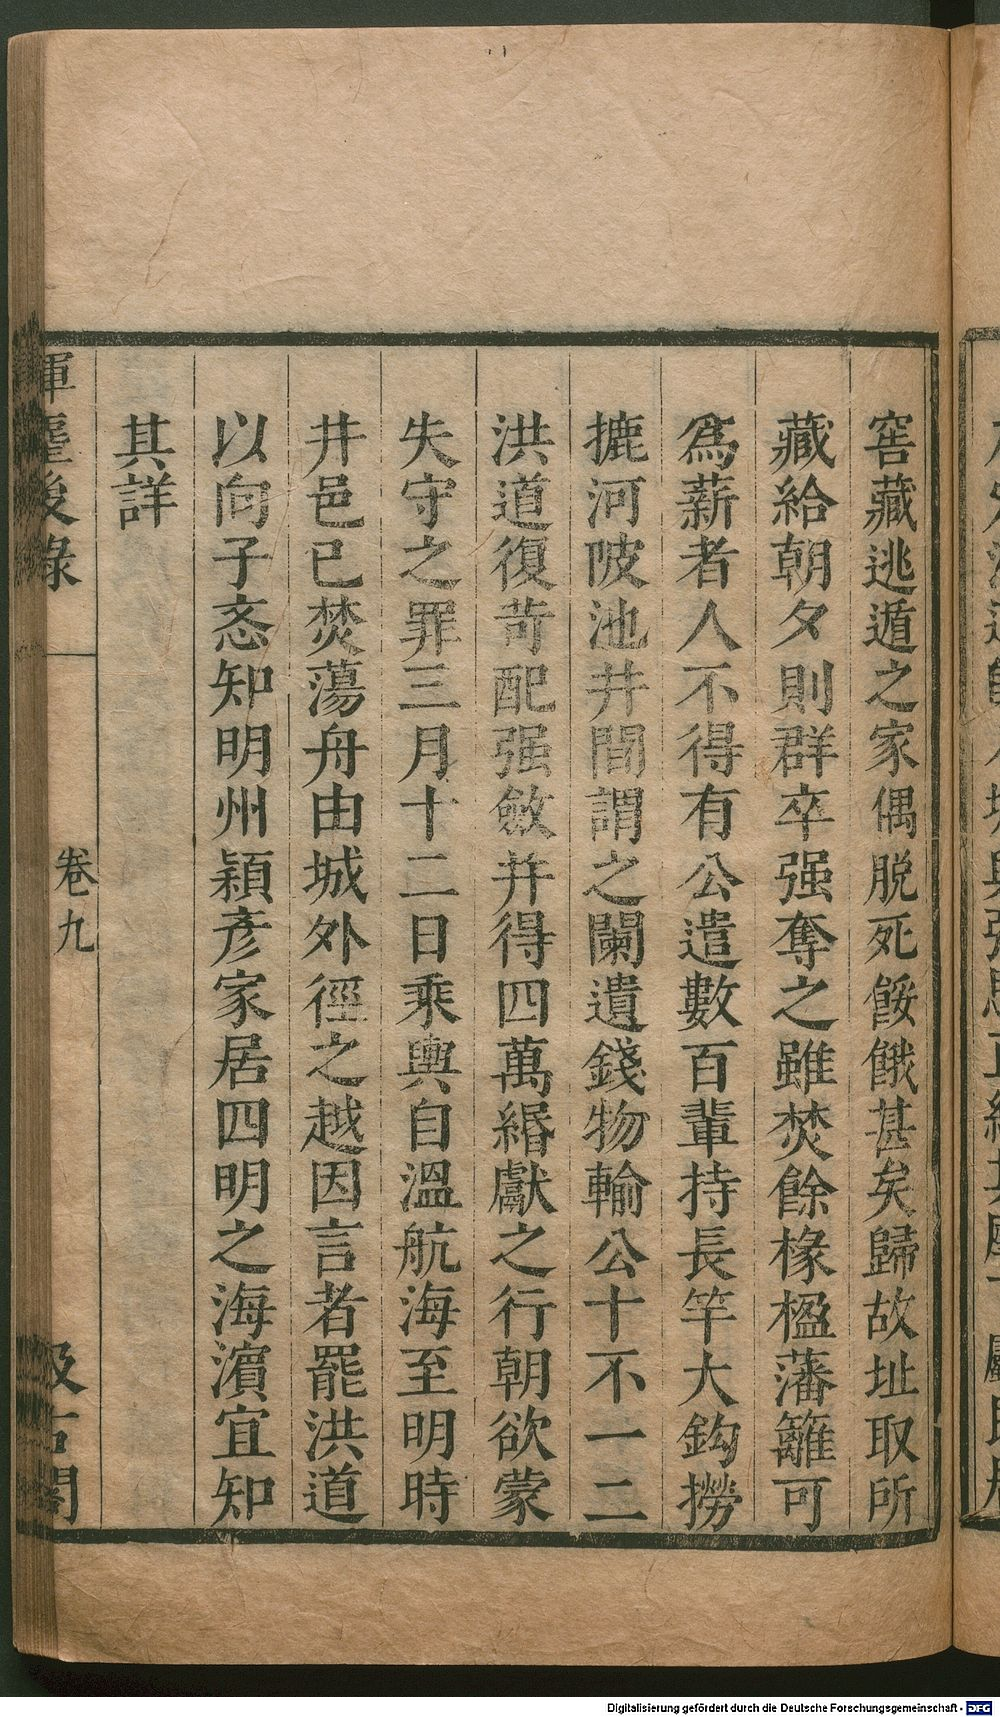 窖藏逃遁之家偶脱死餒餓甚矣歸故址取所
藏給朝夕則群卒强奪之雖焚餘椽楹藩籬可
爲薪者人不得有公遣數百輩持長竿大鈎撈
摝河陂池井間謂之闌遺錢物輸公十不一二
洪道復苛配强斂并得四萬緡獻之行朝欲蒙
失守之罪三月十二日乘輿自溫航海至明時
井邑已焚蕩舟由城外徑之越因言者罷洪道
以向子忞知明州穎彦家居四明之海濵宜知
其詳
揮麈後錄
卷九
汲古閣
Digitalisierung gefördert durch die Deutsche Forschungsgemeinschaft - DFG